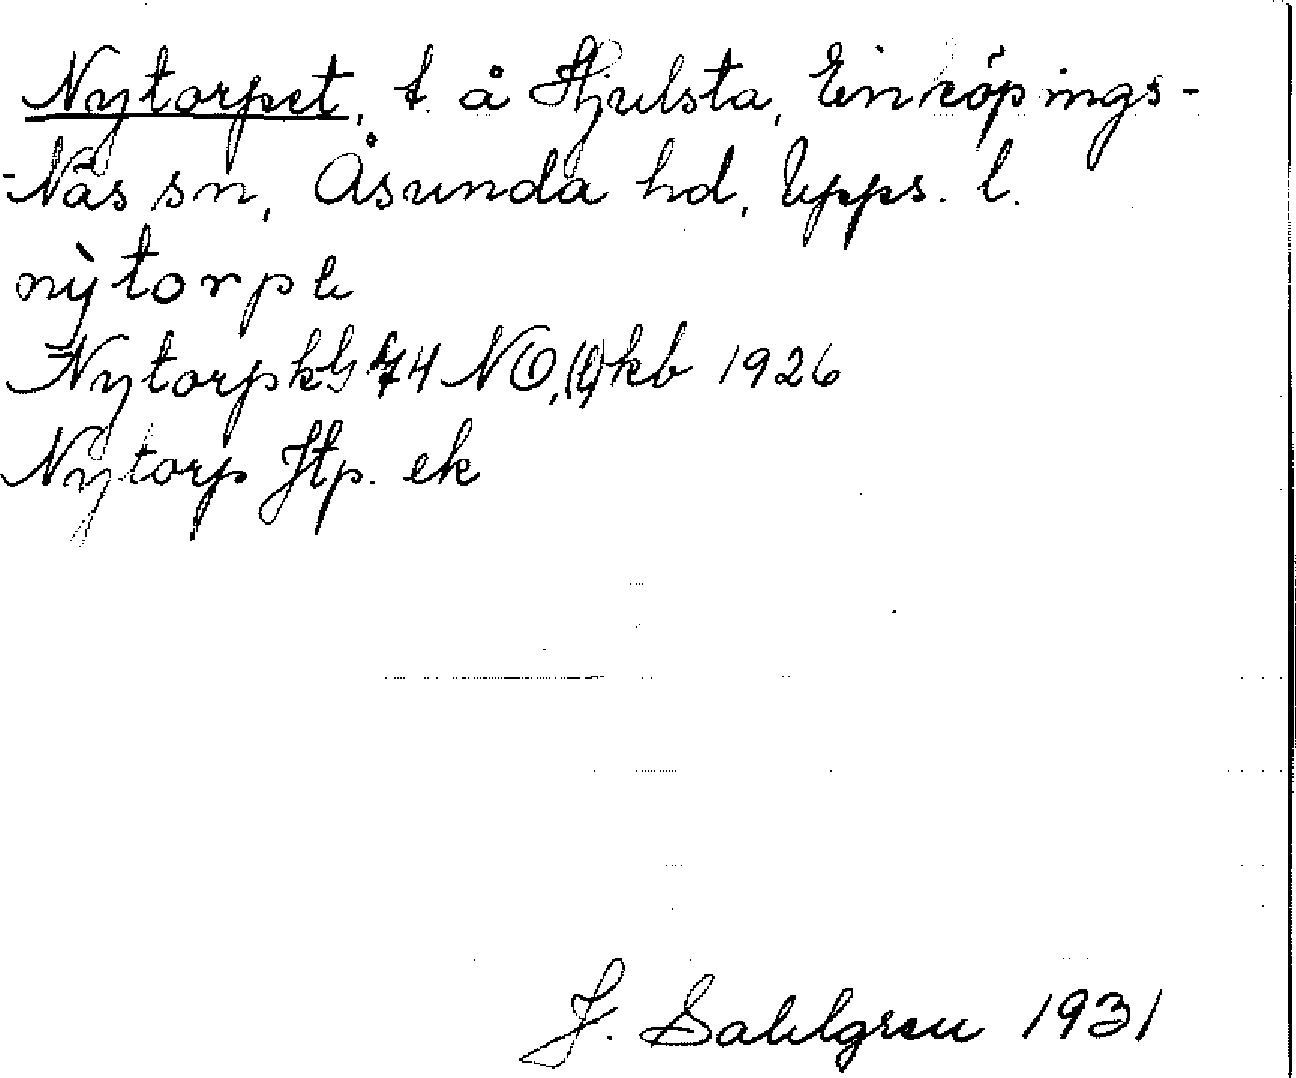 Nytorpet, t. å Hjulsta, Enköpings-
-Näs sn, Åsunda hd, Upps. l.
nỳtorpe
Nytorp kG 74 NO, (l) kb 1926
Nytorp Jtp. ek
J. Sahlgren 1931